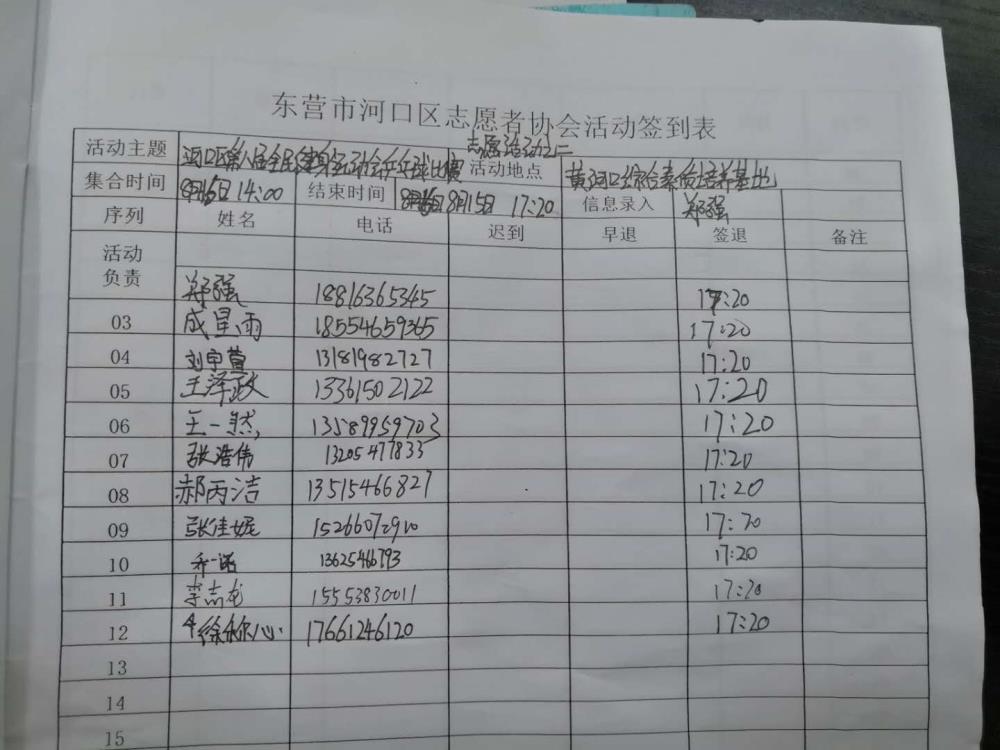 东营市河口区志愿者协会活动签到表
志愿活动之二
活动主题 河口区第八届全民健身运动会乒乓球比赛 活动地点 黄河口综合素质培养基地
集合时间 8月15日 14:00 结束时间 8月15日 17:20 信息录入 郑强
序列 姓名 电话 迟到 早退 签退 备注
活动
负责 郑强 18816365345 17:20
03 成星雨 18554659365 17:20
04 刘宇萱 13181982727 17:20
05 王泽政 13361502122 17:20
06 王一然 13589959703 17:20
07 张浩伟 13205477833 17:20
08 郝丙洁 13515466827 17:20
09 张佳妮 15266072910 17:20
10 乔一诺 13625466793 17:20
11 李志龙 15553830011 17:20
12 徐称心 17661246120 17:20
13
14
15